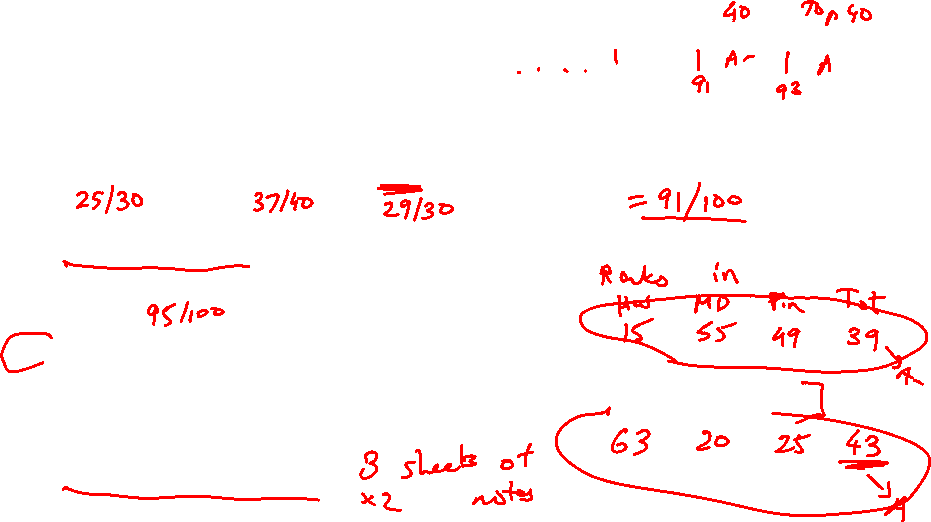 40 Top 40
. . . . . | | A- | A
91 92
25/30 37/40 29/30 = 91/100
Ranks in
95/100 HW MD Fin Tot
15 55 49 39
A
63 20 25 43
3 sheets of
x2 notes